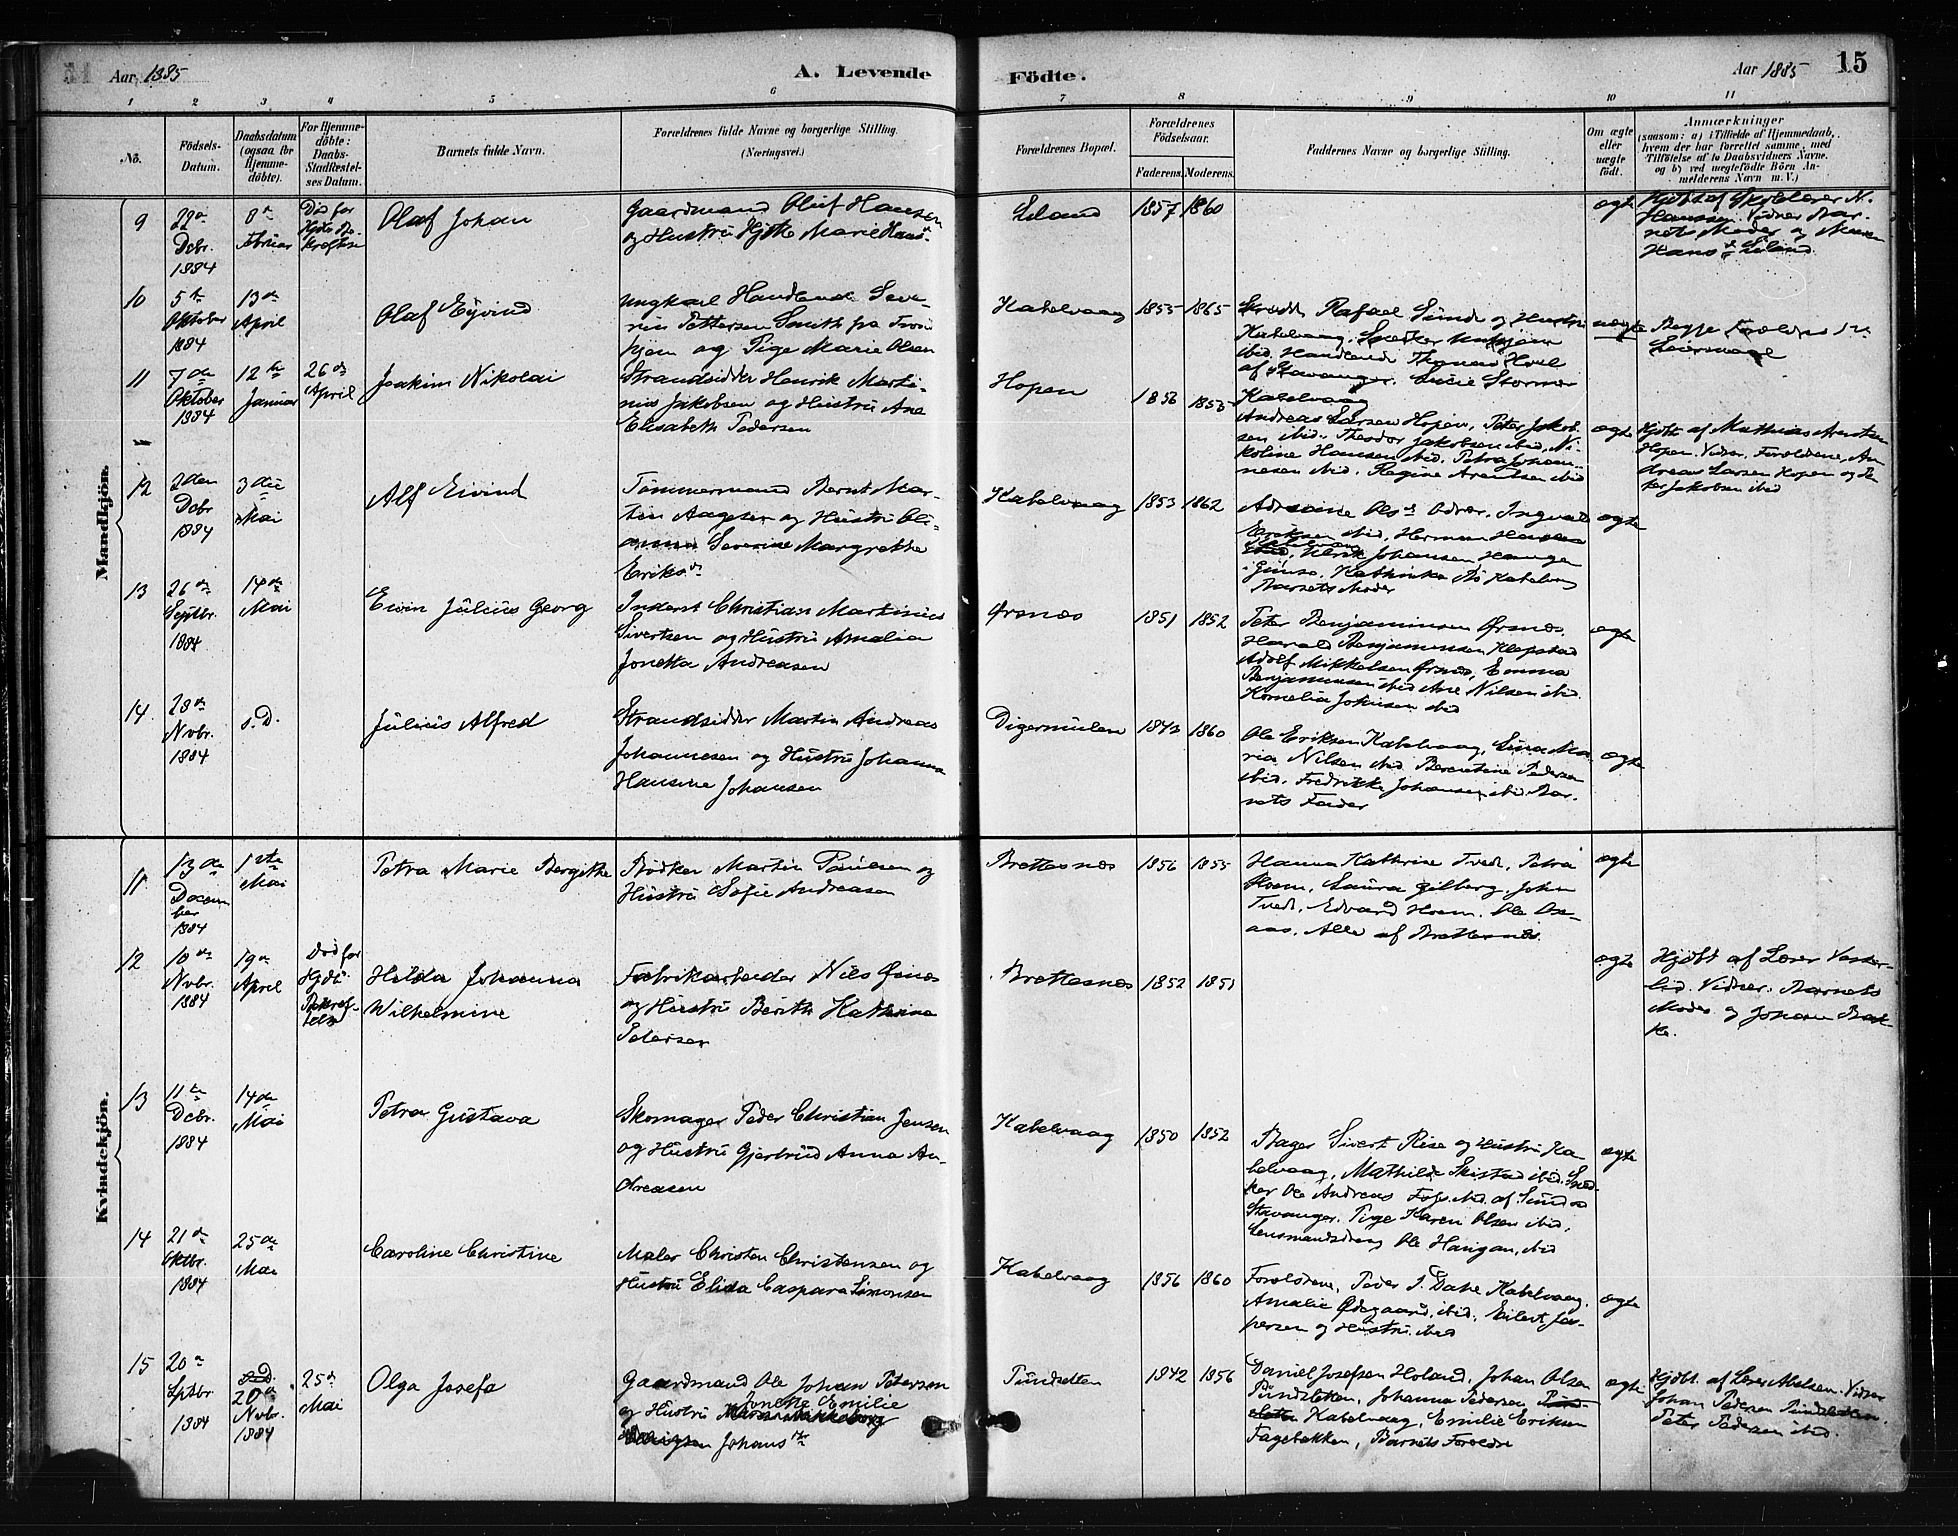 Aar 1885
A. Levende
Födte.
Aar 1885
15
1 2 3 4 5 6 7 8 9 10 11
No.
Födsels-
Datum.
Daabsdatum
(ogsaa for
Hjemme-
döbte).
For Hjemme-
döbte:
Daabs-
Stadfæstel-
ses Datum.
Barnets fulde Navn.
Forældrenes fulde Navne og borgerlige Stilling.
(Næringsvei.)
Forældrenes Bopæl.
Forældrenes
Födselsaar.
Faderens. Moderens.
Faddernes Navne og borgerlige Stilling.
Om ægte
eller
uægte
født.
Anmærkninger
(saasom: a) i Tilfælde af Hjemmedaab,
hvem der har forrettet samme, med
Tilföielse af to Daabsvidners Navne.
og b) ved uægtefödte Börn An-
melderens Navn m. V.)
Mandkjön.
9
22de
Dcbr.
1884
8de
Februar
Död før
Olaf Johan
Gaardmand Oluf Hansen
og Hustru Marie
1857 1860
ægte
Hansen. Vidner Bar-
nets Moder og
10
5te
Oktober
1884
13de
April
Olaf Eyvind
Ungkarl Handlende Seve-
rin Pettersen Smith fra Tron-
hjem og Pige Marie Olsen
Kabelvaag
1855 1865
Rafael Sund og Hustru
Kabelvaag, Snedker
ibid. Handlende Thomas
af Stavanger.
Kabelvaag
uægte
Begge Forældres 1ste
Leiermaal
11
7de
Oktober
1884
12te
Januar
26de
April
Joakim Nikolai
Strandsidder Henrik Marti-
nus Jakobsen og Hustru Ane
Elisabeth Pedersen
Hopen
1856 1855
Andreas Larsen Hopen, Peter Jakob-
sen ibid. Theodor Jakobsen ibid. Ni-
koline Hansen ibid. Petra Johan-
nesen ibid. Regine Arentsen ibid
ægte
Hjdbt af Mathias Arentsen
Hopen. Vidner Forældrene, An-
dreas Larsen Hopen og Pe-
ter Jakobsen ibid
12
2den
Dcbr
1884
3die
Mai
Alf Eivind
Tömmermand Bernt Mar-
tin Aagesen og Hustru Oli-
Severine Margrethe
Eriksdr
Kabelvaag
1853 1862
Ingvald
Eriksen ibid, Herman
Kabelvaag
Johansen Hauge
i Gimsø. Kathinka
Barnets Moder
ægte
13
26de
Septbr.
1884
14de
Mai
Ewin Julius Georg
Inderst Christian Martinius
Sivertsen og Hustru Amalia
Jonetta Andreasen
Ørsnæs
1851 1852
Peter Benjaminsen Ørsnæs.
Harald Benjaminsen Klepstad
Adolf Mikkelsen Ørsnæs, Emma
Benjaminsen ibid Ane Nilsen ibid.
Kornelia Johnsen ibid
ægte
14
28de
Nvbr.
1884
s. D.
Julius Alfred
Strandsidder Martin Andreas
Johannesen og Hustru Johanna
Hansine Johansen
Digermulen
1843 1860
Ole Eriksen Kabelvaag, Lina Ma-
ria Nilsen ibid Berentine Pedersen
ibid. Fredrikke Johansen ibid Bar-
nets Fader
ægte
Kvindekjön.
11
13de
Decem-
ber
1884
1ste
Mai
Petra Marie Bergithe
Bødker Martin Paulsen og
Hustru Sofie Andreasen
Brettesnæs
1856 1855
Hanna Kathrine Tvedt, Petra
Hoem, Laura Gilberg, John
Tvedt, Edvard Hoem. Ole
Alle af Brettesnæs.
ægte
12
10de
Nvbr.
1884
19de
April
Död før
Hilda Johanna
Wilhelmine
Fabrikarbeider Nils
og Hustru Berith Kathrine
Petersen
Brettesnæs
1852 1851
ægte
Hjdbt af Lærer
ibid. Vidner: Barnets
Moder og Johan Bak-
ke.
13
11te
Dcbr.
1884
14de
Mai
Petra Gustava
Skomager Peder Christian Jensen
og Hustru Gjertrud Anna An-
dreasen
Kabelvaag
1850 1852
Bager Sivert Rise og Hustru Ka-
belvaag, Mathilde Skistad ibid. Sned-
ker Ole Andreas
Stavanger. Pige Karen Olsen ibid,
Lensmandsdreng Ole ibid
ægte
14
21de
Oktbr.
1884
25de
Mai
Caroline Christine
Maler Christen Christensen og
Hustru Elida Caspara Simonsen
Kabelvaag
1856 1860
Forældrene, Peder J. Dahl Kabelvaag.
Amalie Ødegaard, ibid, Eilert Jes-
persen og Hustru ibid
ægte
15
20de
Sptbr
1884
20de
Nvbr.
1884
25de
Mai
Olga Josefa
Gaardmand Ole Johan Petersen
og Hustru
Emilie
Johansdtr
Pundsletten
1842 1856
Daniel Josefsen Holand, Johan Olsen
Pundsletten, Johanna Pedersen
Kabelvaag, Emilie Eriksen
Fagebakken, Barnets Forældre
ægte
Hjdbt. af Lærer Vidner
Johan Pedersen Pundsletten.
Peter Pedersen ibid.